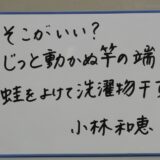 そこがいい?
じっと動かぬ竿の端
蛙をよけて洗濯物干す
小林和恵